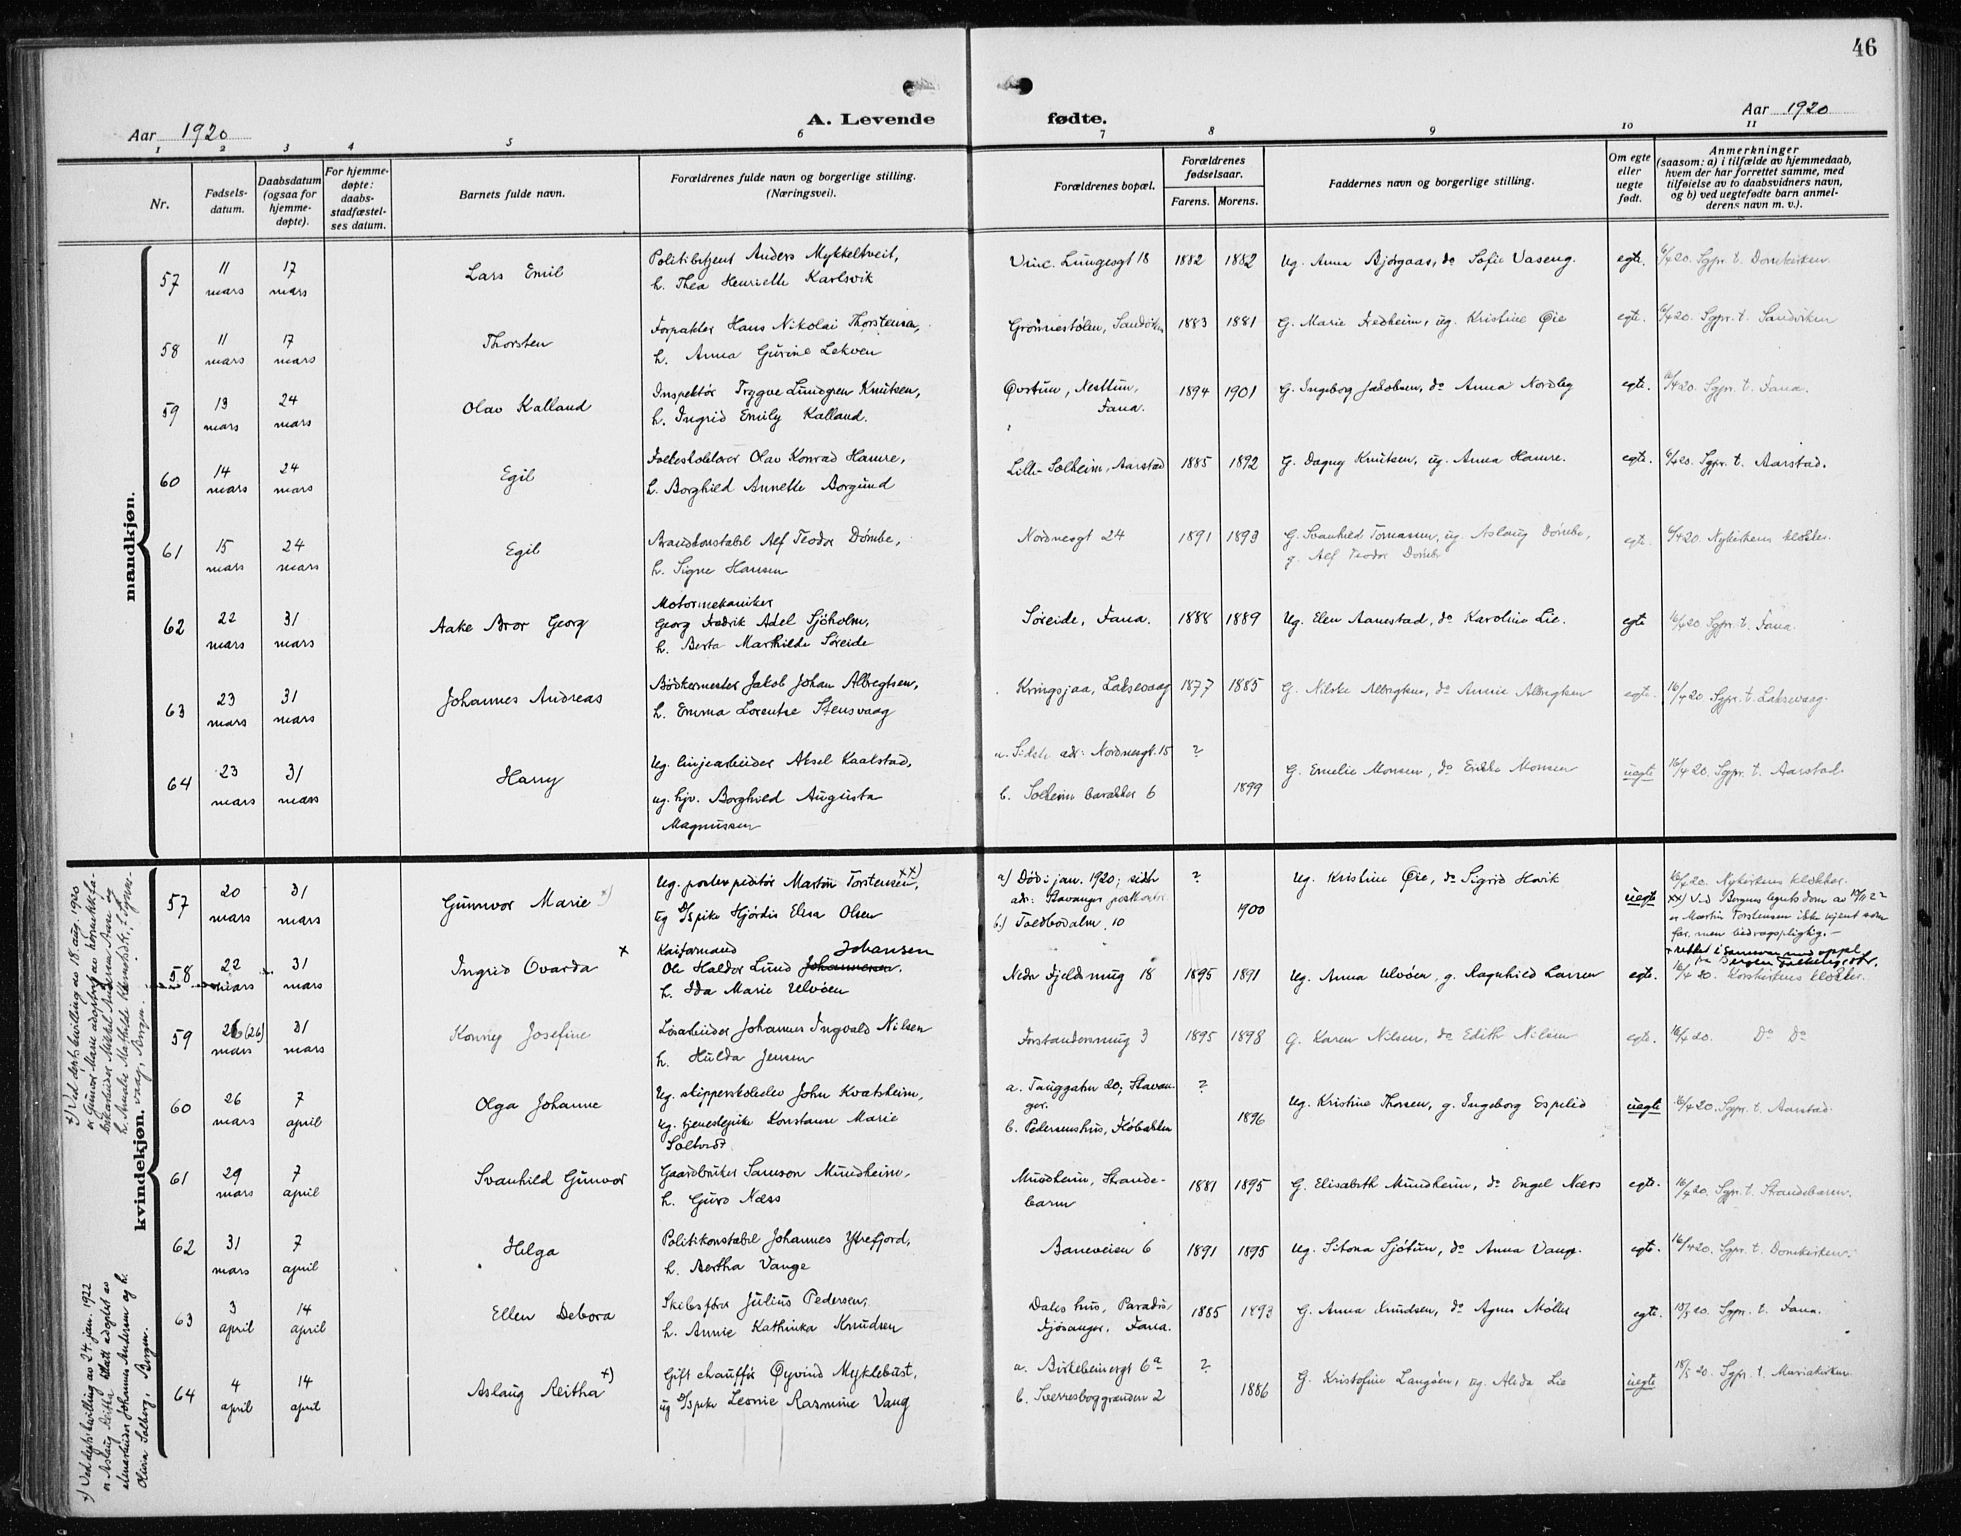 46
Aar 1920
A. Levende fødte.
Aar 1920
1 2 3 4 5 6 7 8 9 10 11
Nr.
Fødsels-
datum.
Daabsdatum
(ogsaa for
hjemme-
døpte).
For hjemme-
døpte:
daabs-
stadfæstel-
ses datum.
Barnets fulde navn.
Forældrenes fulde navn og borgerlige stilling.
(Næringsvei).
Forældrenes bopæl.
Forældrenes
fødselsaar.
Farens. Morens.
Faddernes navn og borgerlige stilling.
Om egte
eller
uegte
født.
Anmerkninger
(saasom: a) i tilfælde av hjemmedaab,
hvem der har forrettet samme, med
tilføielse av to daabsvidners navn,
og b) ved uegtefødte barn anmel-
derens navn m. v.).
mandkjøn.
57 11 mars 17 mars Lars Emil
Politibetjent Anders Mykkeltveit,
h. Thea Henriette Karlsvik
Vinc. Lungesgt 18 1882 1882 Ug. Anna Bjørgaas, do Sofie Vaseng. egte. 6/4 20. Sgpr. t. Domkirken.
58 11 mars 17 mars Thorsten
Forpakter Hans Nikolai Thorstensen,
h. Anna Gurine Lekven
Grønnestølen, Sandviken 1883 1881 G. Marie Hedheim, ug. Kristine Øie egte. 6/4 20. Sgpr. t. Sandviken
59 13 mars 24 mars Olav Kalland
Inspektør Trygve Lundgren Knutsen,
h. Ingrid Emily Kalland.
Øvstun, Nesttun, Fana. 1894 1901 G. Ingeborg Jakobsen, do Anna Nordby egte. 16/4 20. Sgpr. t. Fana.
60 14 mars 24 mars Egil
Folkeskolelærer Olav Konrad Hamre,
h. Borghild Annette Borgund
Lille-Solheim, Aarstad 1885 1892 G. Dagny Knutsen, ug. Anna Hamre. egte. 6/4 20. Sgpr. t. Aarstad.
61 15 mars 24 mars Egil
Brandkonstabel Alf Teodor Dømbe,
h. Signe Hansen
Nordnesgt 24 1891 1893 G. Svanhild Tomassen, ug. Aslaug Dømbe,
g. Alf Teodor Dømbe
egte. 6/4 20. Nykirkens klokker.
62 22 mars 31 mars Aake Bror Georg
Motormekaniker
Georg Fredrik Adel Sjöholm,
h. Berta Marthilde Søreide
Søreide, Fana. 1888 1889 Ug. Elen Aanestad, do Karoline Lie. egte 16/4 20. Sgpr. t. Fana.
63 23 mars 31 mars Johannes Andreas
Bødkermester Jakob Johan Albregtsen,
h. Emma Lorentse Stensvaag
Kringsjaa, Laksevaag 1877 1885 G. Nilske Albregtsen, do Annie Albregtsen egte. 16/4 20. Sgpr. t. Laksevaag.
64 23 mars 31 mars Harry
Ug. linjearbeider Aksel Kaalstad,
ug. hjv. Borghild Augusta
Magnussen
a. Sidste adr: Nordnesgt. 15 ?
b. Solheim barakker 6 1899
G. Emelie Monsen, do Erikke Monsen uegte 16/4 20. Sgpr. t. Aarstad.
kvindekjøn.
57 20 mars 31 mars Gunnvor Marie x)
Ug. postexpeditør Martin Torstensen, xx)
ug D/spike Hjørdis Elisa Olsen
a) Død i jan. 1920; sidste ?
adr: Stavanger postkontor
b.) Toldbodalm. 10 1900
Ug. Kristine Øie, do Sigrid Hovik uegte
16/4 20. Nykirkens klokker.
xx) Ved Bergens byrets dom av 17/11 22
er Martin Torstensen ikke kjent som
far, men bidragspligtig.
58 22 mars 31 mars Ingrid Ovarda x
Kaiformand Johansen
Ole Haldor Lund Johannesen.
h. Ida Marie Ulvøen
Nedre Fjeldsmug 18 1895 1891 Ug. Anna Ulvøen, g. Ragnhild Larsen egte.
+ rettet i samsvar med oppl.
fra Bergen folkeregister.
16/4 20. Korskirkens klokker.
59 26 (26) mars 31 mars Konny Josefine
Løsarbeider Johannes Ingvald Nilsen
h. Hulda Jensen
Forstandersmug 3 1895 1898 G. Karen Nilsen, do Edith Nilsen egte. 16/4 20. Do Do
60 26 mars 7 april Olga Johanne
Ug. skipperskoleelev John Kvatsheim,
ug. tjenestepike Konstanse Marie
Saltvedt
a. Tauggaten 20, Stavan- ?
ger.
b. Pedersenshus, Flobakken 1896
Ug. Kristine Thorsen, g. Ingeborg Espelid uegte 16/4 20. Sgpr. t. Aarstad.
61 29 mars 7 april Svanhild Gunvor
Gaardbruker Samson Mundheim,
h. Guro Næss
Mundheim, Strande-
barm
1881 1895 G. Elisabeth Mundheim, do Engel Næss egte. 16/4 20. Sgpr. t. Strandebarm.
62 31 mars 7 april Helga
Politikonstabel Johannes Ytrefjord,
h. Bertha Vange
Baneveien 6 1891 1895 Ug. Sitona Sjøtun, do Anna Vange. egte. 16/4 20. Sgpr. t. Domkirken.
63 3 april 14 april Ellen Debora
Skibsfører Julius Pedersen,
h. Annie Kathinka Knudsen
Dales hus, Paradis,
Fjøsanger, Fana.
1885 1893 G. Anna Knudsen, do Agnes Møller egte. 18/5 20. Sgpr. t. Fana.
64 4 april 14 april Aslaug Reitha x)
Gift chauffør Øyvind Myklebust,
ug D/spike Leonie Rasmine Vang
a. Birkebeinergt 6a ?
b. Sverresborggrenden 2 1886
G. Kristofine Langøen, ug. Alida Lie uegte 18/5 20. Sgpr. t. Mariakirken
x) Ved dept. bevilling av 18. aug. 1920
er Gunvor Marie adoptert av hermetikkfa-
brikarbeider Mikkel Andreas Aasen og
h. Amalie Mathilde Klementsdtr., Lyngs-
vaag, Bergen.
x) Ved dept. bevilling av 24. jan. 1922
er Aslaug Reitha blatt adoptert av
elvarbeider Johannes Andersen og h.
Olivia Solberg, Bergen.